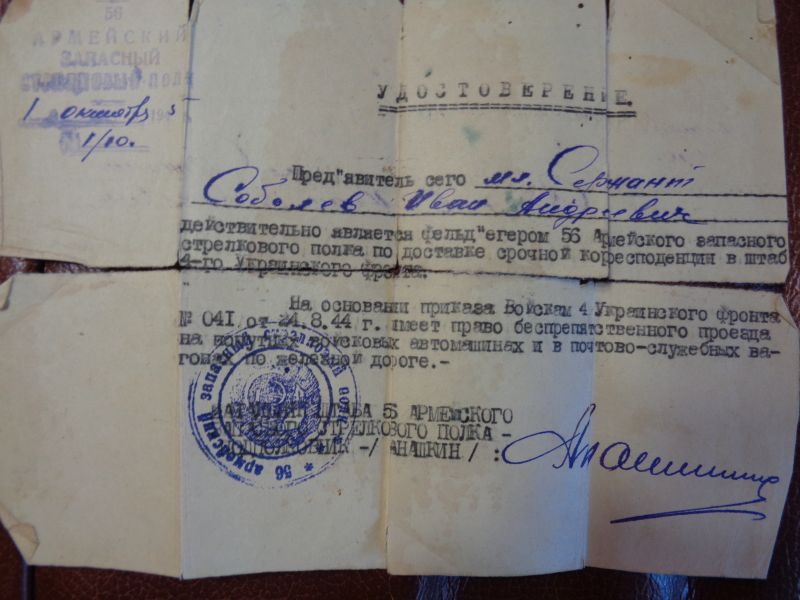 56
АРМЕЙСКИЙ
ЗАПАСНЫЙ
СТРЕЛКОВЫЙ ПОЛК
1 октября
1/10.
УДОСТОВЕРЕНИЕ.
Пред"явитель сего мл. Сержант
Соболев Иван Андреевич
действительно является фельд"егером 56 Армейского запасного
стрелкового полка по доставке срочной кореспонденции в штаб
4-го Украинского фронта.
На основании приказа Войскам 4 Украинского фронта
№ 041 от 24.8.44 г. имеет право беспрепятственного проезда
на попутных войсковых автомашинах и в почтово-служебных ва-
гонах по железной дороге.-
НАЧАЛЬНИК ШТАБА 56 АРМЕЙСКОГО
ЗАПАСНОГО СТРЕЛКОВОГО ПОЛКА -
ПОДПОЛКОВНИК -/ АНАШКИН / :
56 армейский запасный стрелковый полк